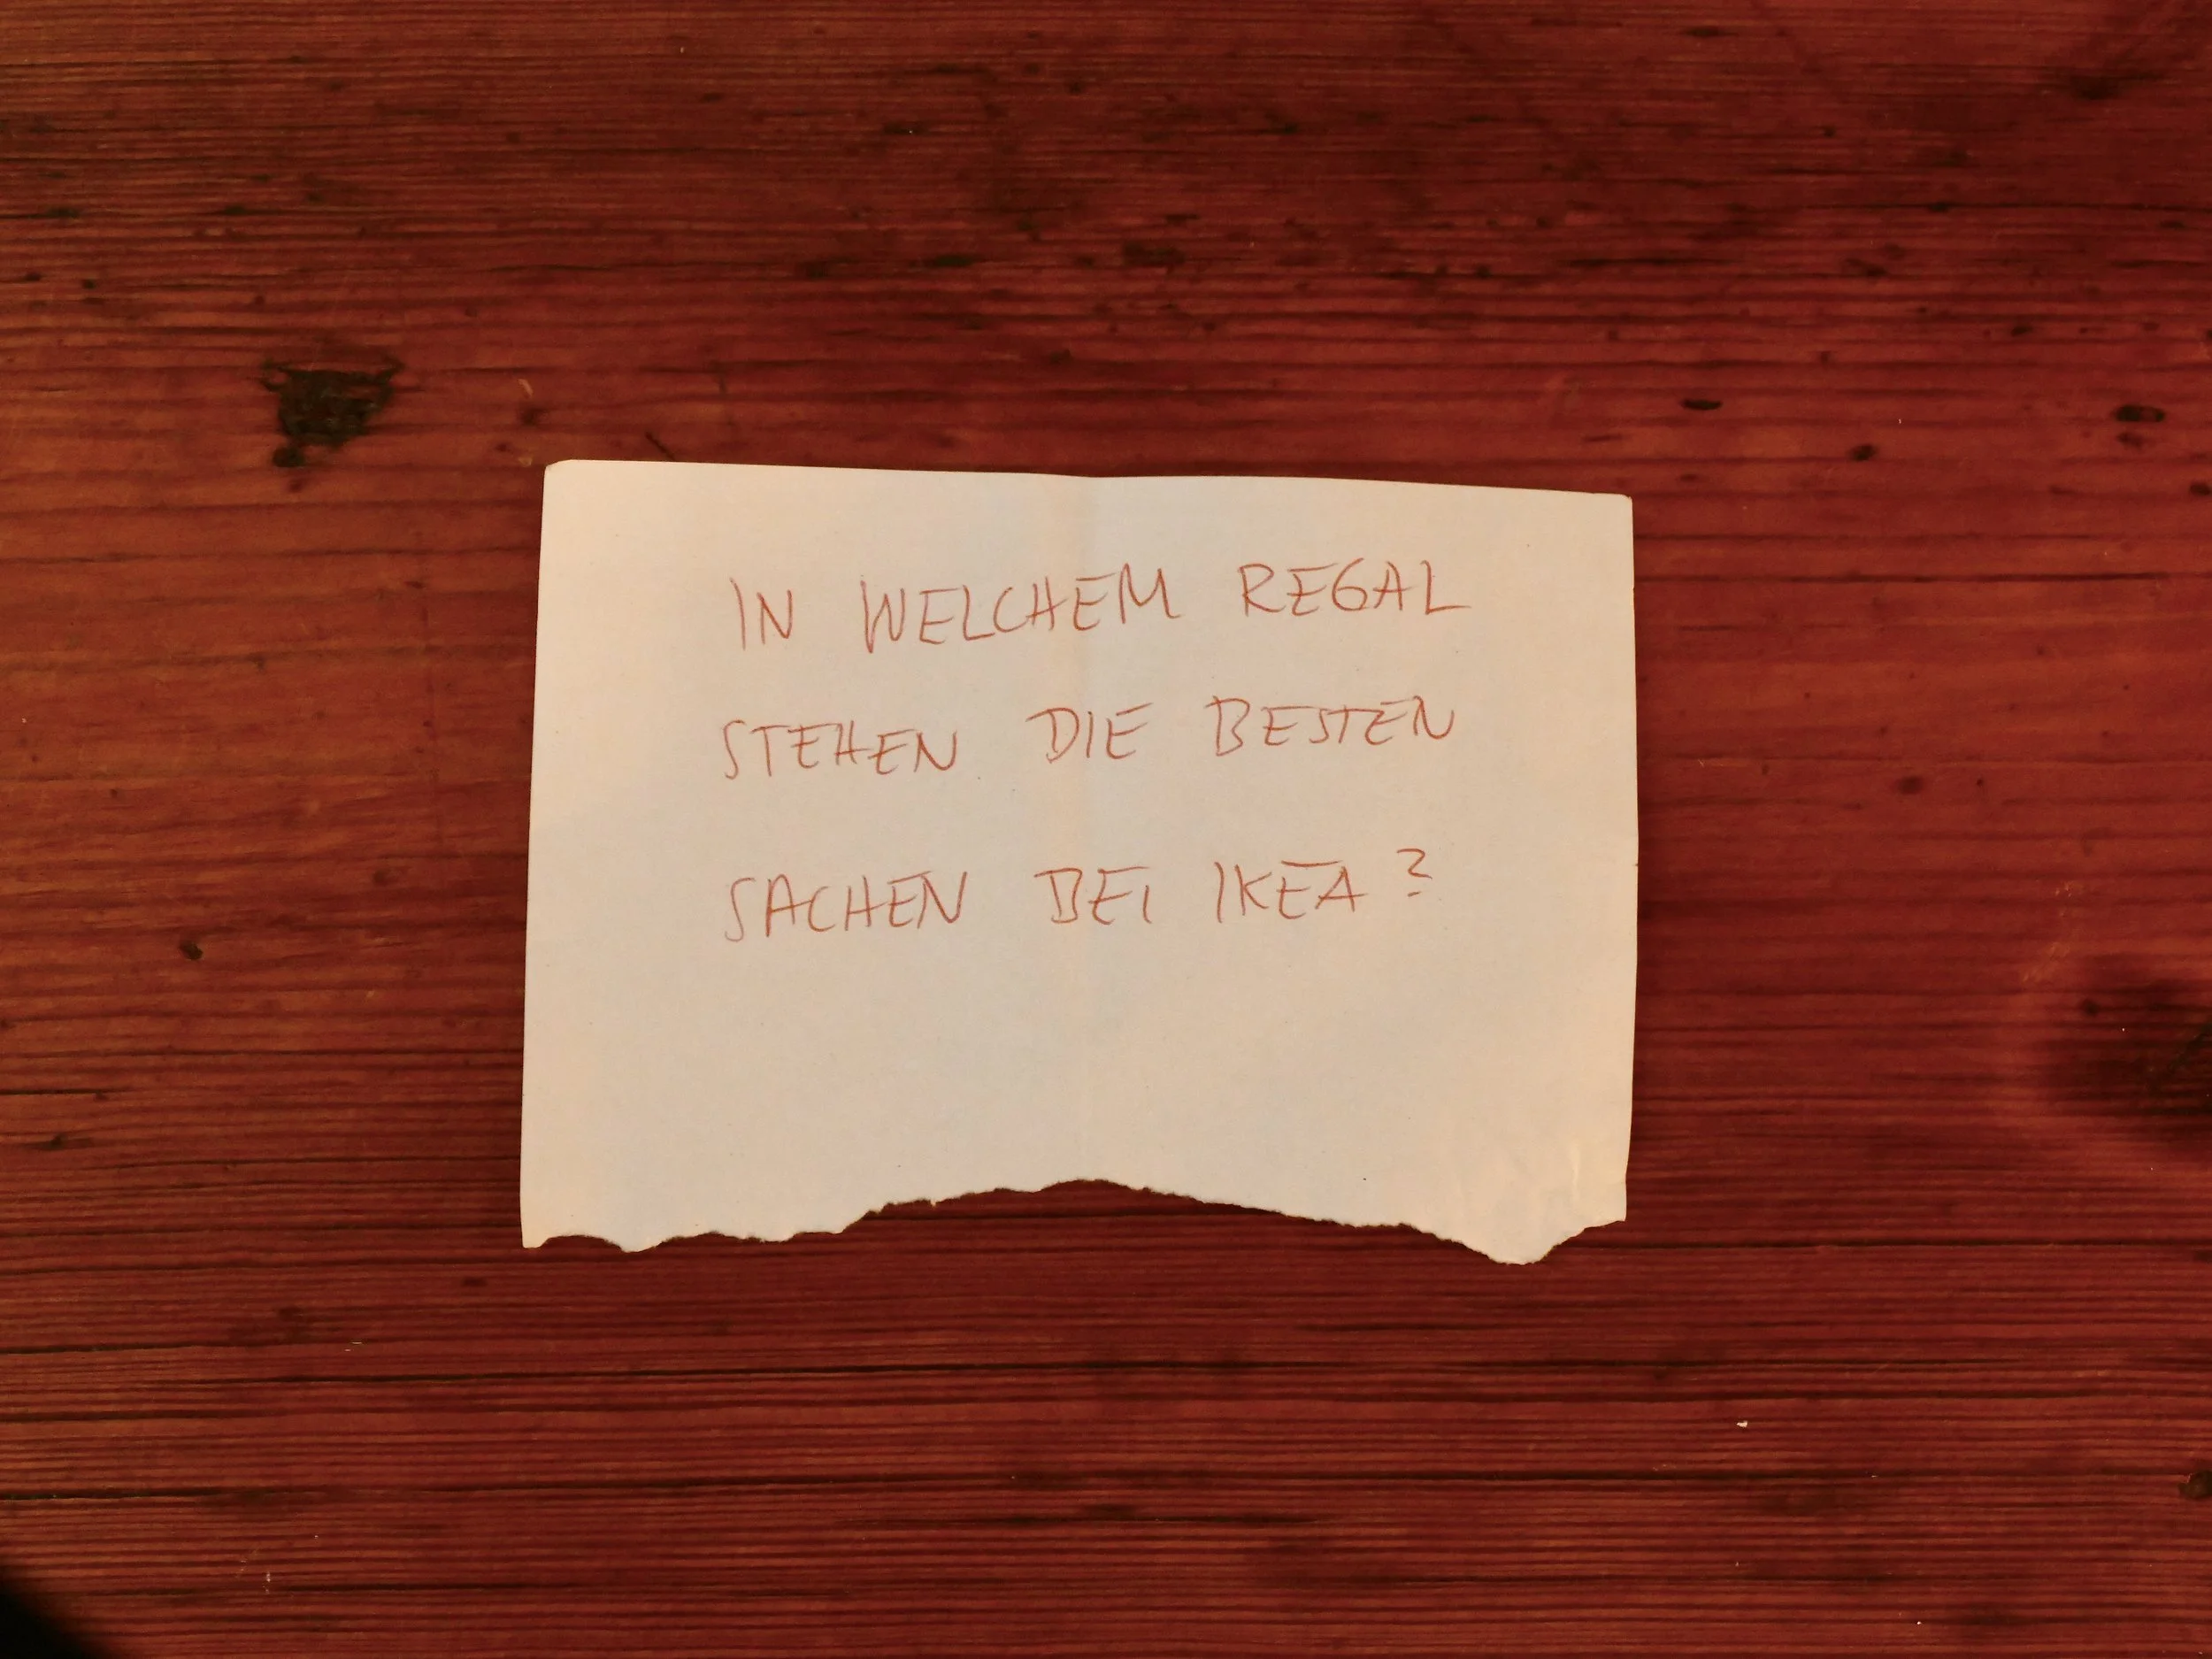 IN WELCHEM REGAL
STEHEN DIE BESTEN
SACHEN BEI IKEA?